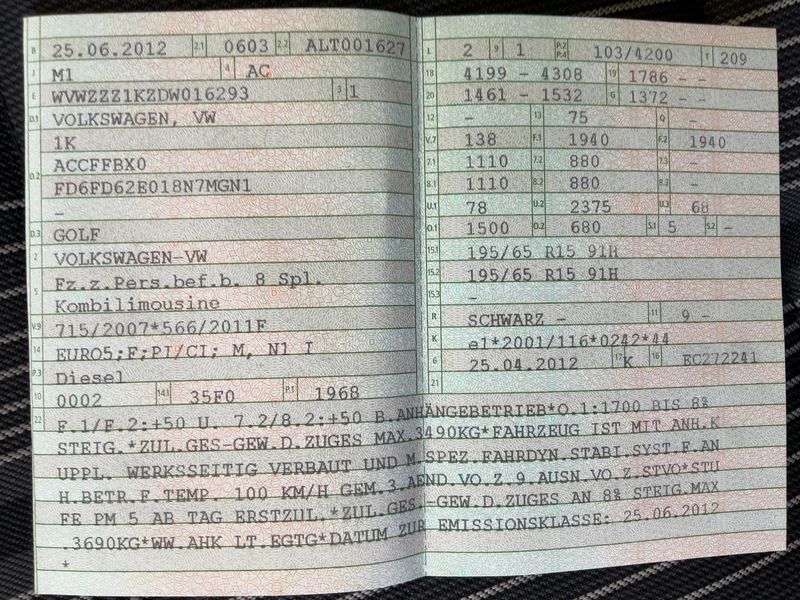 B 25.06.2012 2.1 0603 2.2 ALT001627
J M1 4 AC
E WVWZZZ1KZDW016293 3 1
D.1 VOLKSWAGEN, VW
1K
D.2 ACCFFBX0
FD6FD62E018N7MGN1
-
D.3 GOLF
2 VOLKSWAGEN-VW
5 Fz.z.Pers.bef.b. 8 Spl.
Kombilimousine
V.9 715/2007*566/2011F
14 EURO5;F;PI/CI; M, N1 I
P.3 Diesel
10 0002 14.1 35F0 P.1 1968
L 2 9 1 P.2 P.4 103/4200 T 209
18 4199 - 4308 19 1786 - -
20 1461 - 1532 G 1372 - -
12 - 13 75 Q -
V.7 138 F.1 1940 F.2 1940
7.1 1110 7.2 880 7.3 -
8.1 1110 8.2 880 8.3 -
U.1 78 U.2 2375 U.3 68
O.1 1500 O.2 680 S.1 5 S.2 -
15.1 195/65 R15 91H
15.2 195/65 R15 91H
15.3 -
R SCHWARZ - 11 9 -
K e1*2001/116*0242*44
6 25.04.2012 17 K 16 EC272241
21
22 F.1/F.2:+50 U. 7.2/8.2:+50 B.ANHÄNGEBETRIEB*O.1:1700 BIS 8%
STEIG.*ZUL.GES-GEW.D.ZUGES MAX.3490KG*FAHRZEUG IST MIT ANH.K
UPPL. WERKSSEITIG VERBAUT UND M.SPEZ.FAHRDYN.STABI.SYST.F.AN
H.BETR.F.TEMP. 100 KM/H GEM.3.AEND.VO.Z.9.AUSN.VO.Z.STVO*STU
FE PM 5 AB TAG ERSTZUL.*ZUL.GES.-GEW.D.ZUGES AN 8% STEIG.MAX
.3690KG*WW.AHK LT.EGTG*DATUM ZUR EMISSIONSKLASSE: 25.06.2012
*